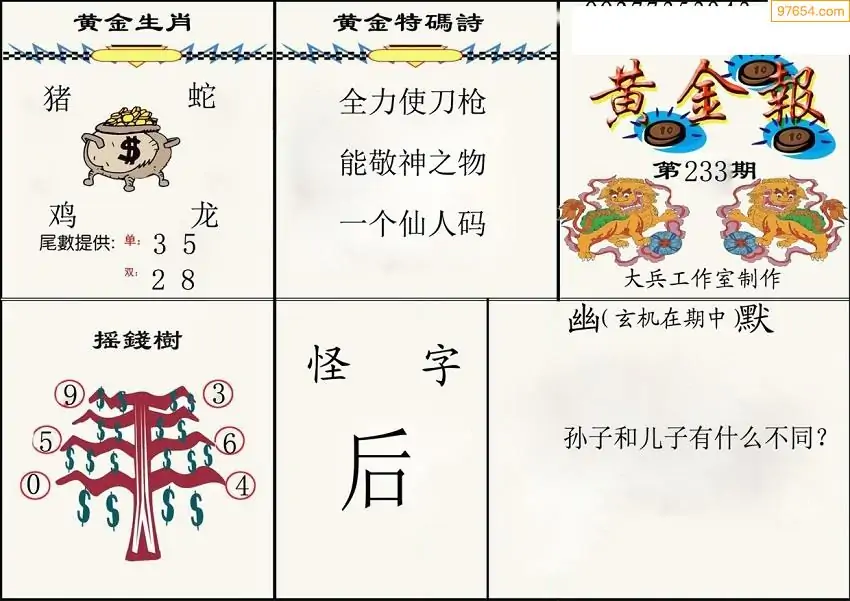 97654.com
黄金生肖
猪 蛇
鸡 龙
尾數提供: 单: 3 5
双: 2 8
黄金特碼詩
全力使刀枪
能敬神之物
一个仙人码
黄金報
10
10
10
第233期
大兵工作室制作
摇錢樹
9 3
5 6
0 4
怪 字
后
幽(玄机在期中)默
孙子和儿子有什么不同?